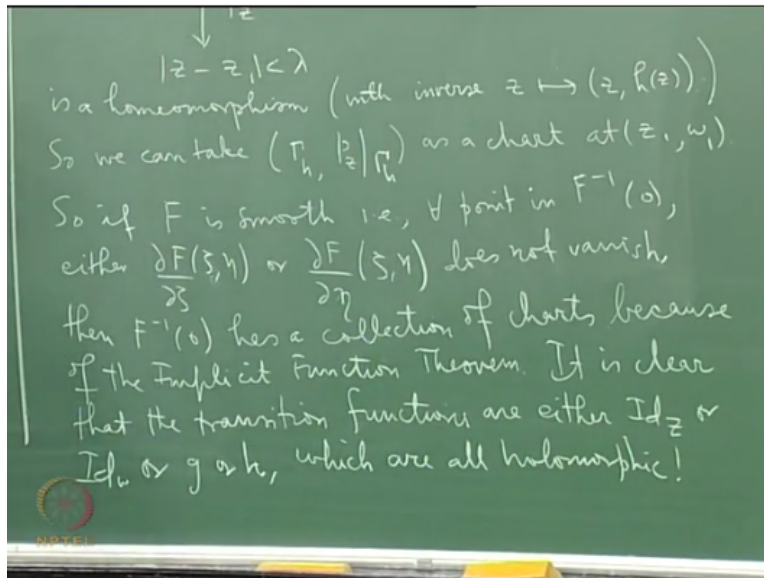 |z
|z - z₁| < λ
is a homeomorphism (with inverse z ↦ (z, h(z)))
So we can take (Γₕ, p_z|Γₕ) as a chart at (z₁, w₁).
So if F is smooth i.e., ∀ point in F⁻¹(0),
either ∂F/∂ξ (ξ, η) or ∂F/∂η (ξ, η) does not vanish,
then F⁻¹(0) has a collection of charts because
of the Implicit Function Theorem. It is clear
that the transition functions are either Id_z or
Id_w or g or h, which are all holomorphic!
NPTEL